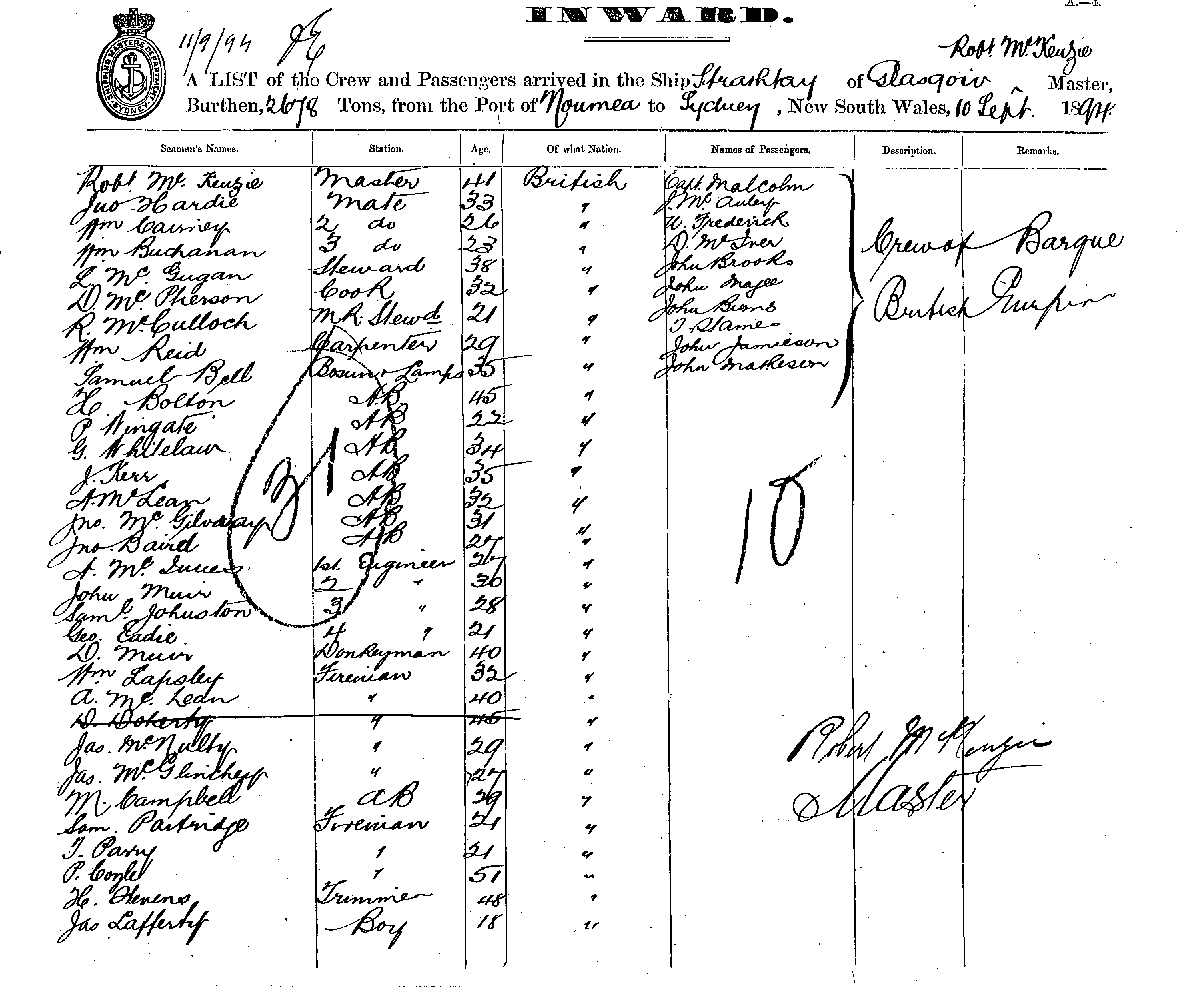 INWARD.
A.—4.
11/9/94
Robt McKenzie
A LIST of the Crew and Passengers arrived in the Ship Strathtay of Glasgow Master,
Burthen, 2678 Tons, from the Port of Noumea to Sydney, New South Wales, 10 Sept. 1894.
Seamen's Names. Station. Age. Of what Nation. Names of Passengers. Description. Remarks.
Robt Mc Kenzie Master 41 British Capt. Malcolm
Jno Hardie Mate 33 "
Wm Cairney 2 do 26 " Frederick
Wm Buchanan 3 do 23 " D. McIver
L Mc Gugan Steward 38 " John Brooks
D. Mc Pherson Cook 32 " John Magee
R. McCulloch M.R. Stewd 21 " John Binns
Wm Reid Carpenter 29 " John Jamieson
Samuel Bell Bosun & Lamps 35 " John Matheson
Crew of Barque
British
H. Bolton AB 45 "
P Wingate AB 22 "
G. Whitelaw AB 34 "
J. Kerr AB 35 "
A. McLean AB 32 "
Jno. Mc Gilvray AB 31 "
Jno. Baird AB 27 "
31
10
A. Mc Innes 1st Engineer "
John Muir 2 " 30 "
Saml Johnston 3 " 28 "
Geo. Eadie 4 " 21 "
D. Muir Donkeyman 40 "
Wm Lapsley Fireman 32 "
A. Mc. Lean " 40 "
D. Doherty " 45 "
Jas. McNulty " 29 "
Jas. McGlinchey " 27 "
M. Campbell AB 39 "
Sam. Partridge Fireman 21 "
T. Parry " 21 "
P. Coyle " 51 "
H. Stevens Trimmer 48 "
Jas Lafferty Boy 18 "
Robert McKenzie
Master